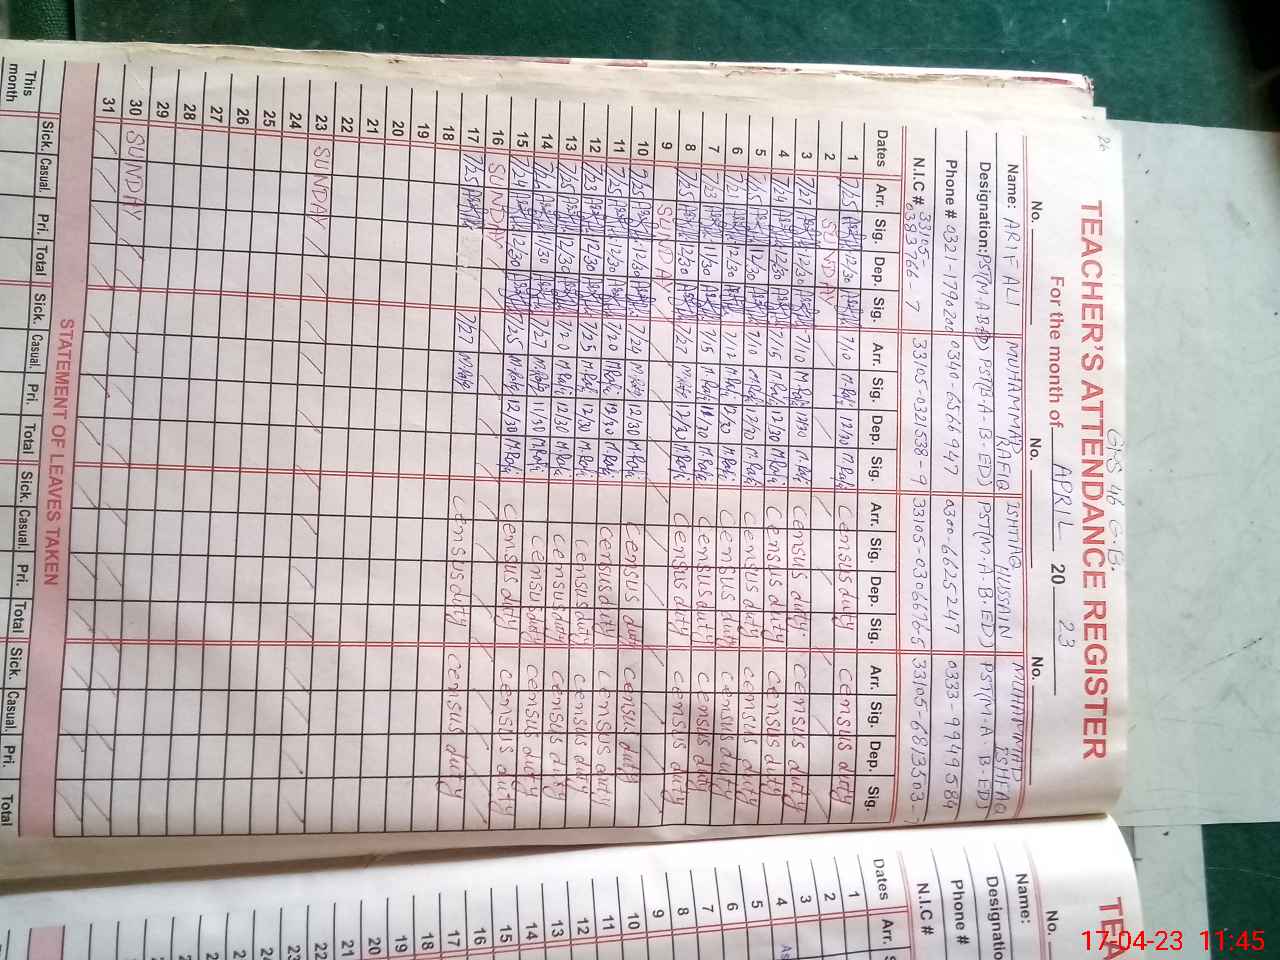 26
G.P.S 46 G.B.
TEACHER'S ATTENDANCE REGISTER
For the month of APRIL 2023
No. No. No.
Name: ARIF ALI MUHAMMAD RAFIQ ISHTIAQ HUSSAIN MUHAMMAD ISHFAQ
Designation: PST(M.A.B.ED) PST(B.A.B.ED) PST(M.A.B.ED) PST(M.A.B.ED)
Phone # 0321-1790200 0340-6566947 0300-6625247 0333-9949584
N.I.C # 33105-0383766-7 33105-0321538-9 33105-0306676-5 33105-6813503-7
Dates Arr. Sig. Dep. Sig. Arr. Sig. Dep. Sig. Arr. Sig. Dep. Sig. Arr. Sig. Dep. Sig.
1 7/25 12/30 7/10 M.Rafiq 12/30 M.Rafiq census duty census duty
2 SUNDAY
3 7/27 12/30 7/10 M.Rafiq 12/30 M.Rafiq census duty census duty
4 7/24 12/30 7/15 M.Rafiq 12/30 M.Rafiq census duty census duty
5 7/15 12/30 7/10 M.Rafiq 12/30 M.Rafiq census duty census duty
6 7/21 12/30 7/12 M.Rafiq 12/30 M.Rafiq census duty census duty
7 7/23 11/30 7/15 M.Rafiq 11/30 M.Rafiq census duty census duty
8 7/25 12/30 7/27 M.Rafiq 12/30 M.Rafiq census duty census duty
9 SUNDAY
10 7/25 12/30 7/24 M.Rafiq 12/30 M.Rafiq census duty census duty
11 7/25 12/30 7/20 M.Rafiq 12/30 M.Rafiq census duty census duty
12 7/23 12/30 7/25 M.Rafiq 12/30 M.Rafiq census duty census duty
13 7/25 12/30 7/20 M.Rafiq 12/30 M.Rafiq census duty census duty
14 7/26 11/30 7/27 M.Rafiq 11/30 M.Rafiq census duty census duty
15 7/24 12/30 7/25 M.Rafiq 12/30 M.Rafiq census duty census duty
16 SUNDAY
17 7/25 7/27 M.Rafiq census duty census duty
18
19
20
21
22
23 SUNDAY
24
25
26
27
28
29
30 SUNDAY
31
STATEMENT OF LEAVES TAKEN
Sick. Casual. Pri. Total Sick. Casual. Pri. Total Sick. Casual. Pri. Total Sick. Casual. Pri. Total
This month
TEA
No.
Name:
Designatio
Phone #
N.I.C #
Dates Arr.
1
2
3
4
5
6
7
8
9
10
11
12
13
14
15
16
17
18
19
20
21
22
23
24
25
26
27
28
29
30
31
17-04-23 11:45